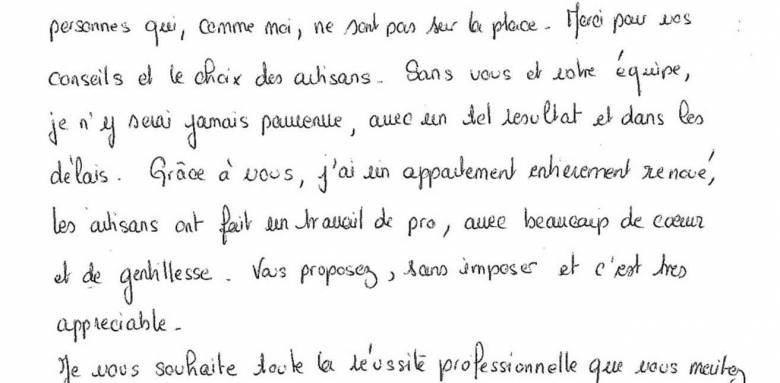 personnes qui, comme moi, ne sont pas sur la place. Merci pour vos
conseils et le choix des artisans. Sans vous et votre équipe,
je n'y serai jamais parvenue, avec un tel resultat et dans les
délais. Grâce à vous, j'ai un appartement entierement renové,
les artisans ont fait un travail de pro, avec beaucoup de coeur
et de gentillesse. Vous proposez, sans imposer et c'est tres
appreciable.
Je vous souhaite toute la réussite professionnelle que vous meritez